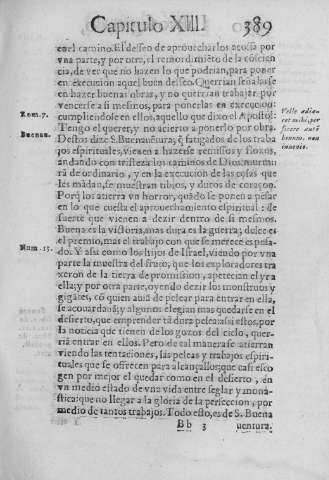 Capitulo XIII. 389
en el camino. El desseo de aprouecharlos acossa por
vna parte, y por otro, el remordimiẽto de la cõscien
cia, de ver que no hazen lo que podrian, para poner
en execucion aquel buen desseo. Querrian señalarse
en hazer buenas obras, y no querrian trabajar por
vencerse a si mesmos, para ponerlas en execucion:
Rom. 7.
cumpliendose en ellos, aquello que dixo el Apostol:
Velle adia-
cet mihi, per
ficere autẽ
bonum, non
inuenio.
Tengo el querer, y no acierto a ponerlo por obra.
Buenau.
Destos dize S. Buenauẽtura, q̃ fatigados de los traba
jos espirituales, vienen a hazerse remissos y floxos,
andando con tristeza los caminos de Dios: murmu
rã de ordinario, y en la execucion de las cosas que
les mãdan, se muestran tibios, y duros de coraçon.
Porq̃ los aterra vn horror, quãdo se ponen a pesar
en lo que cuesta el aprouechamiento espiritual: de
suerte que vienen a dezir dentro de si mesmos.
Buena es la victoria, mas dura es la guerra; dulce es
el premio, mas el trabajo con que se merece es pesa-
Num. 13.
do. Y assi como los hijos de Israel, viendo por vna
parte la muestra del fruto, que los exploradores tra
xeron de la tierra de promission, apetecian el yr a
ella; y por otra parte, oyendo dezir los monstruos y
gigãtes, cõ quien auiã de pelear para entrar en ella,
se acouardauã; y algunos elegian mas quedarse en el
desierto, que emprender tã dura pelea: assi estos, por
la noticia que tienen de los gozos del cielo, quer-
riã entrar en ellos. Pero de tal manera se atierran
viendo las tentaciones, las peleas y trabajos espiri-
tuales que se ofrecen para alcançallos: que casi esco
gen por mejor el quedar como en el desierto, en
vn medio estado de vna vida entre seglar y monã-
stica: que no llegar a la gloria de la perfeccion, por
medio de tantos trabajos. Todo esto, es de S. Buena
Bb 3 uentura.